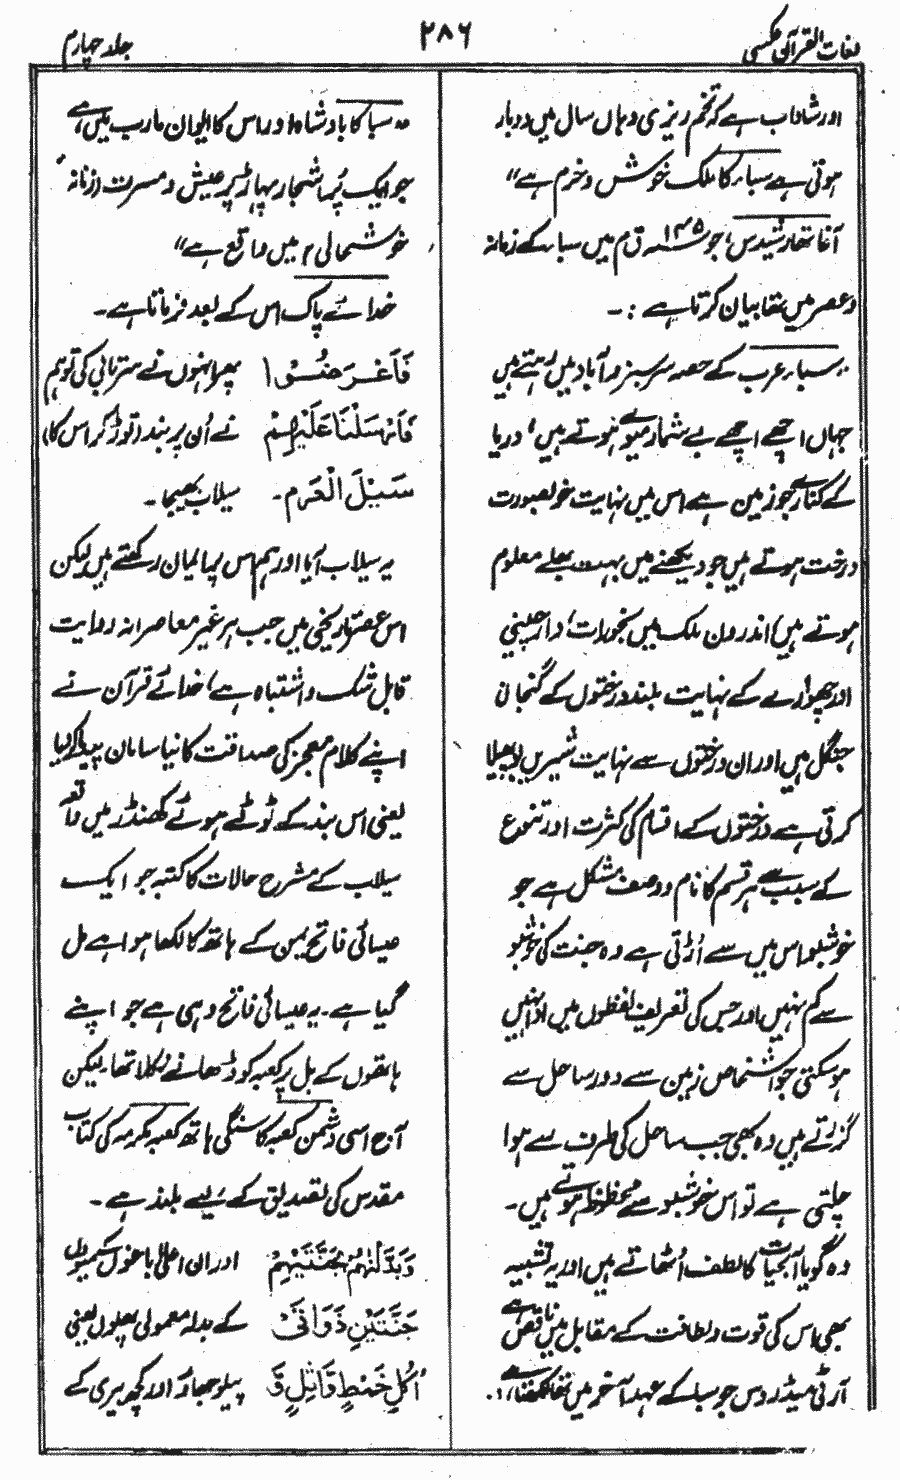 لغات القرآن عکسی
۲۸۶
جلد چہارم
اور شاداب ہے کہ تخم ریزی وہاں سال میں دو بار
ہوتی ہے سباء کا ملک خوش و خرم ہے"
آغاتھارشیدس، جو ۱۴۵ سنہ ق م میں سباء کے زمانہ
و عصر میں تھا بیان کرتا ہے :۔
"سباء عرب کے حصہ سرسبز و آباد میں رہتے ہیں
جہاں اچھے اچھے بے شمار میوے ہوتے ہیں، دریا
کے کنارے جو زمین ہے اس میں نہایت خوبصورت
درخت ہوتے ہیں جو دیکھنے میں بہت بھلے معلوم
ہوتے ہیں، اندرون ملک میں بخورات، دارچینی
اور چھوارے کے نہایت بلند درختوں کے گنجان
جنگل ہیں اور ان درختوں سے نہایت شیریں بو پھیلا
کرتی ہے درختوں کے اقسام کی کثرت اور تنوع
کے سبب سے ہر قسم کا نام و وصف مشکل ہے جو
خوشبو اس میں سے اُڑتی ہے وہ جنت کی خوشبو
سے کم نہیں اور جس کی تعریف لفظوں میں ادا نہیں
ہوسکتی جو اشخاص زمین سے دور ساحل سے
گزرتے ہیں وہ بھی جب ساحل کی طرف سے ہوا
چلتی ہے تو اس خوشبو سے محظوظ ہوتے ہیں۔
وہ گویا آبحیات کا لطف اُٹھاتے ہیں اور یہ تشبیہ
بھی اس کی قوت و لطافت کے مقابل میں ناقص ہے"
آرٹی میڈر دس جو سبا کے عہد آخر میں تھا لکھتا ہے،:۔
"سبا کا بادشاہ اور اس کا ایوان مارب میں ہے،
جو ایک پُر اشجار پہاڑ پر عیش و مسرت (زنانہ
خوشحالی) میں واقع ہے"
خدائے پاک اس کے بعد فرماتا ہے۔
فَاَعْرَضُوْا پھر انہوں نے سرتابی کی تو ہم
فَاَرْسَلْنَا عَلَيْهِمْ نے اُن پر بند (توڑ کر اس کا)
سَيْلَ الْعَرِمِ۔ سیلاب بھیجا۔
یہ سیلاب آیا اور ہم اس پر ایمان رکھتے ہیں لیکن
اس عصر تاریخی میں جب ہر غیر معاصرانہ روایت
قابل شک و اشتباہ ہے، خدائے قرآن نے
اپنے کلام معجز کی صداقت کا نیا سامان پیدا کر دیا
یعنی اس بند کے ٹوٹے ہوئے کھنڈر میں واقعہ
سیلاب کے مشرح حالات کا کتبہ جو ایک
عیسائی فاتح یمن کے ہاتھ کا لکھا ہوا ہے مل
گیا ہے۔ یہ عیسائی فاتح وہی ہے جو اپنے
ہاتھوں کے بل پر کعبہ کو ڈھانے نکلا تھا۔ لیکن
آج اسی دشمن کعبہ کا سنگی ہاتھ کعبہ مکرمہ کی کتاب
مقدس کی تصدیق کے لیے بلند ہے۔
وَبَدَّلْنٰهُمْ بِجَنَّتَيْهِمْ اور ان اعلیٰ باغوں کے میووں
جَنَّتَيْنِ ذَوَاتَيْ کے بدلہ معمولی پھلوں یعنی
اُكُلٍ خَمْطٍ وَّاَثْلٍ وَّ پیلو جھاؤ اور کچھ بیری کے